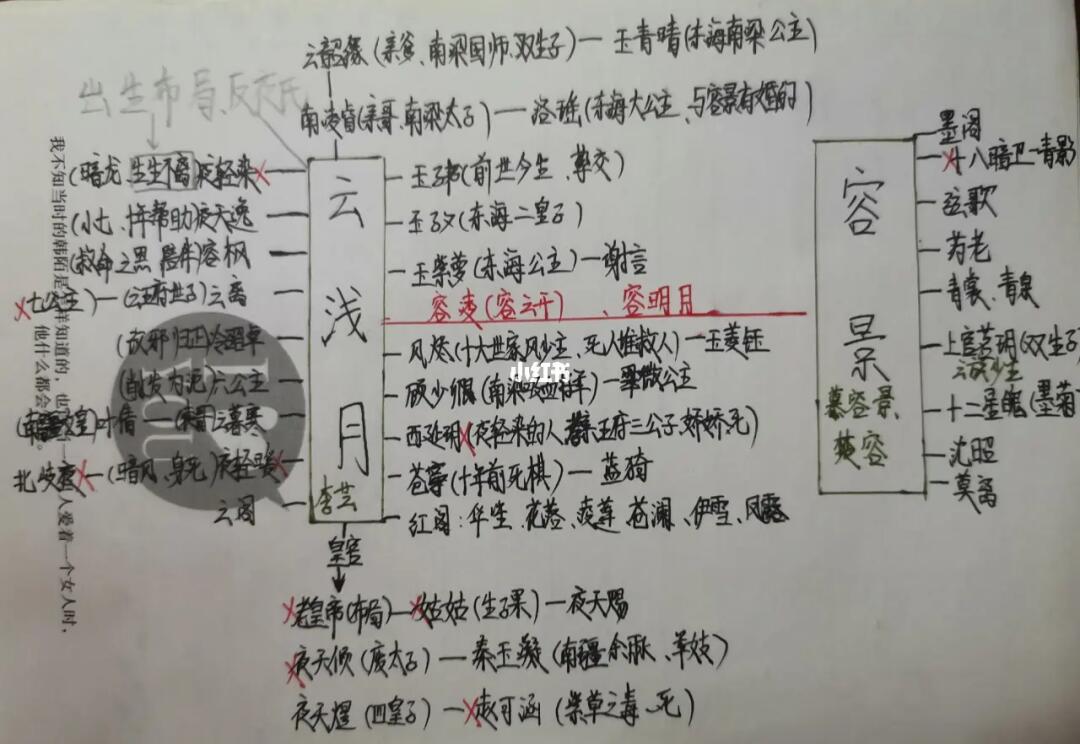 云韶缘(亲爹、南梁国师、双生子)一玉青晴(东海南梁公主)
出生布局、反夜氏
南凌睿(亲哥、南梁太子)—洛瑶(东海大公主、与容景有婚约)
(暗龙、生生不离)夜轻染×
(小七、十年帮助)夜天逸
(救命之恩、陪伴)容枫
×七公主)—(云王府世子)云离
(改邪归正)冷邵卓
六公主
叶倩—云暮寒
×—(暗风、身死)夜轻暖×
云阁
云浅月
李芸
玉子书(前世今生、尊交)
玉子夕(东海二皇子)
玉紫萝(东海公主)—谢言
容凌(容云千)、容明月
风烬(十大世家风少主、死人堆救人)—玉菱钰
顾少卿—翠微公主
西延玥×(夜轻染的人
苍亭(十年前死棋)—蓝漪
红阁:华笙、花落、凌莲、苍澜、伊雪、凤露
小红书
容景
慕容景
楚容
墨阁
×十八暗卫—青影
弦歌
药老
青裳、青泉
上官茗玥(双生子)
云族少主
十二星魄(墨菊)
沈昭
莫离
皇宫
×老皇帝(布局)—×姑姑(生子果)—夜天赐
×夜天倾(废太子)—秦玉凝(南疆余脉、军妓)
夜天煜(四皇子)—×赵可涵(紫草之毒、死)
我不知当时的韩陌是
样知道的,也
人爱着一个女人时,
他什么都会